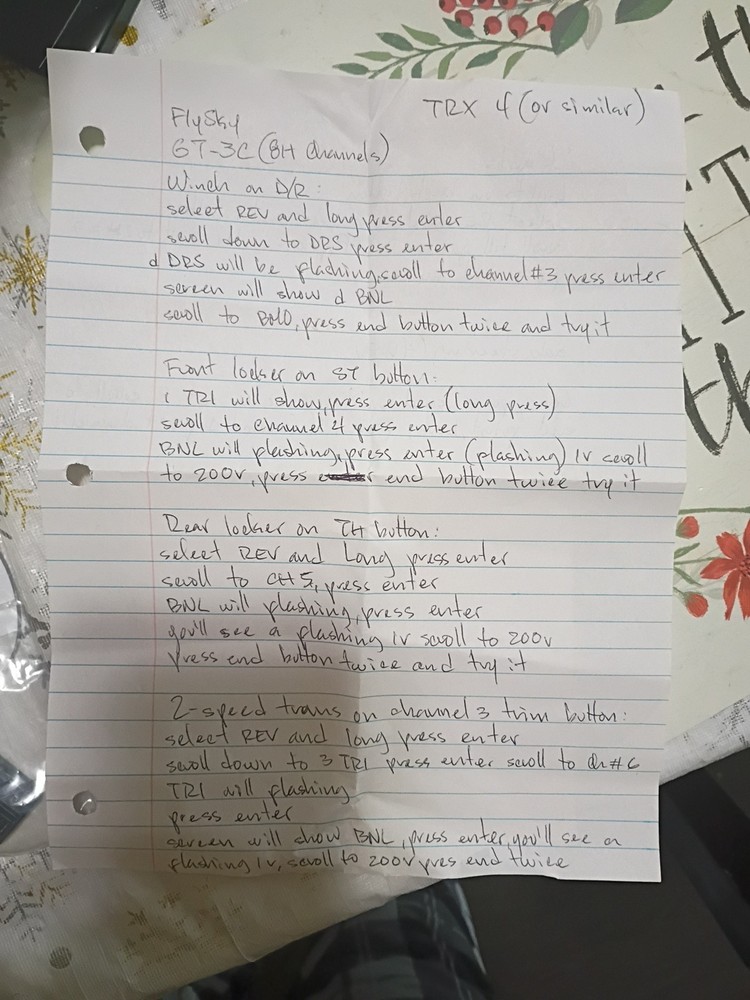 TRX 4 (or similar)
FlySky
GT-3C (8H Channels)
Winch on D/R:
select REV and long press enter
scroll down to DRS press enter
d DRS will be flashing, scroll to channel #3 press enter
screen will show d BNL
scroll to BMO, press end button twice and try it
Front locker on ST button:
1 TRI will show, press enter (long press)
scroll to channel 4 press enter
BNL will flashing, press enter (flashing) 1v scroll
to 200v, press end button twice try it
Rear locker on TH button:
select REV and Long press enter
scroll to CH 5, press enter
BNL will flashing, press enter
you'll see a flashing 1v scroll to 200v
press end button twice and try it
2-speed trans on channel 3 trim button:
select REV and long press enter
scroll down to 3 TRI press enter scroll to ch #6
TRI will flashing
press enter
screen will show BNL, press enter, you'll see a
flashing 1v, scroll to 200v pres end twice